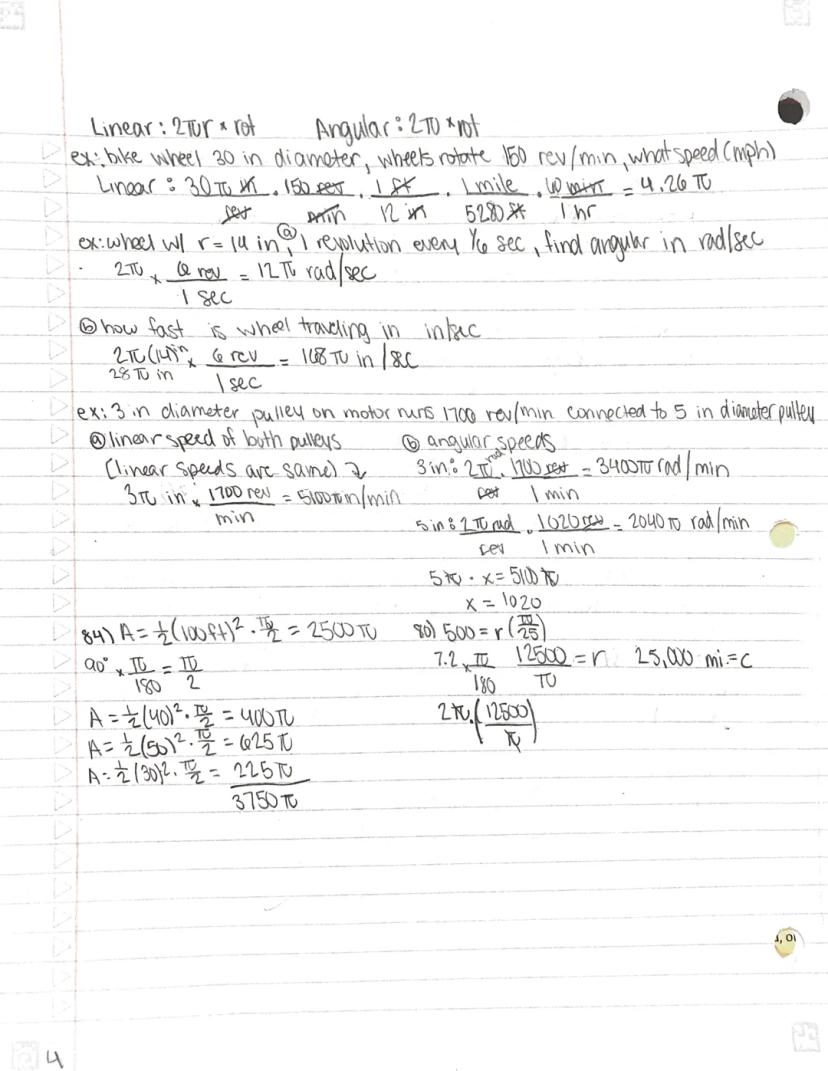 Linear: 2πr × rot Angular: 2π × rot
ex: bike wheel 30 in diameter, wheels rotate 150 rev/min, what speed (mph)
Linear: 30π in/rev · 150 rev/min · 1 ft/12 in · 1 mile/5280 ft · 60 min/1 hr = 4.26π
ex: wheel w/ r = 14 in, ⓐ 1 revolution every 1/6 sec, find angular in rad/sec
2π × 6 rev/1 sec = 12π rad/sec
ⓑ how fast is wheel traveling in in/sec
2π(14) in × 6 rev/1 sec = 168π in/sec
28π in
ex: 3 in diameter pulley on motor runs 1700 rev/min connected to 5 in diameter pulley
ⓐ linear speed of both pulleys
(linear speeds are same)
3π in × 1700 rev/min = 5100π in/min
ⓑ angular speeds
3in: 2π rad/rev · 1700 rev/1 min = 3400π rad/min
5in: 2π rad/rev · 1020 rev/1 min = 2040π rad/min
5π · x = 5100π
x = 1020
84) A = ½(100ft)² · π/2 = 2500π
90° × π/180 = π/2
A = ½(40)² · π/2 = 400π
A = ½(50)² · π/2 = 625π
A = ½(30)² · π/2 = 225π
3750π
80) 500 = r(π/25)
7.2 × π/180 12500/π = r 25,000 mi. = C
2π · (12500/π)
4